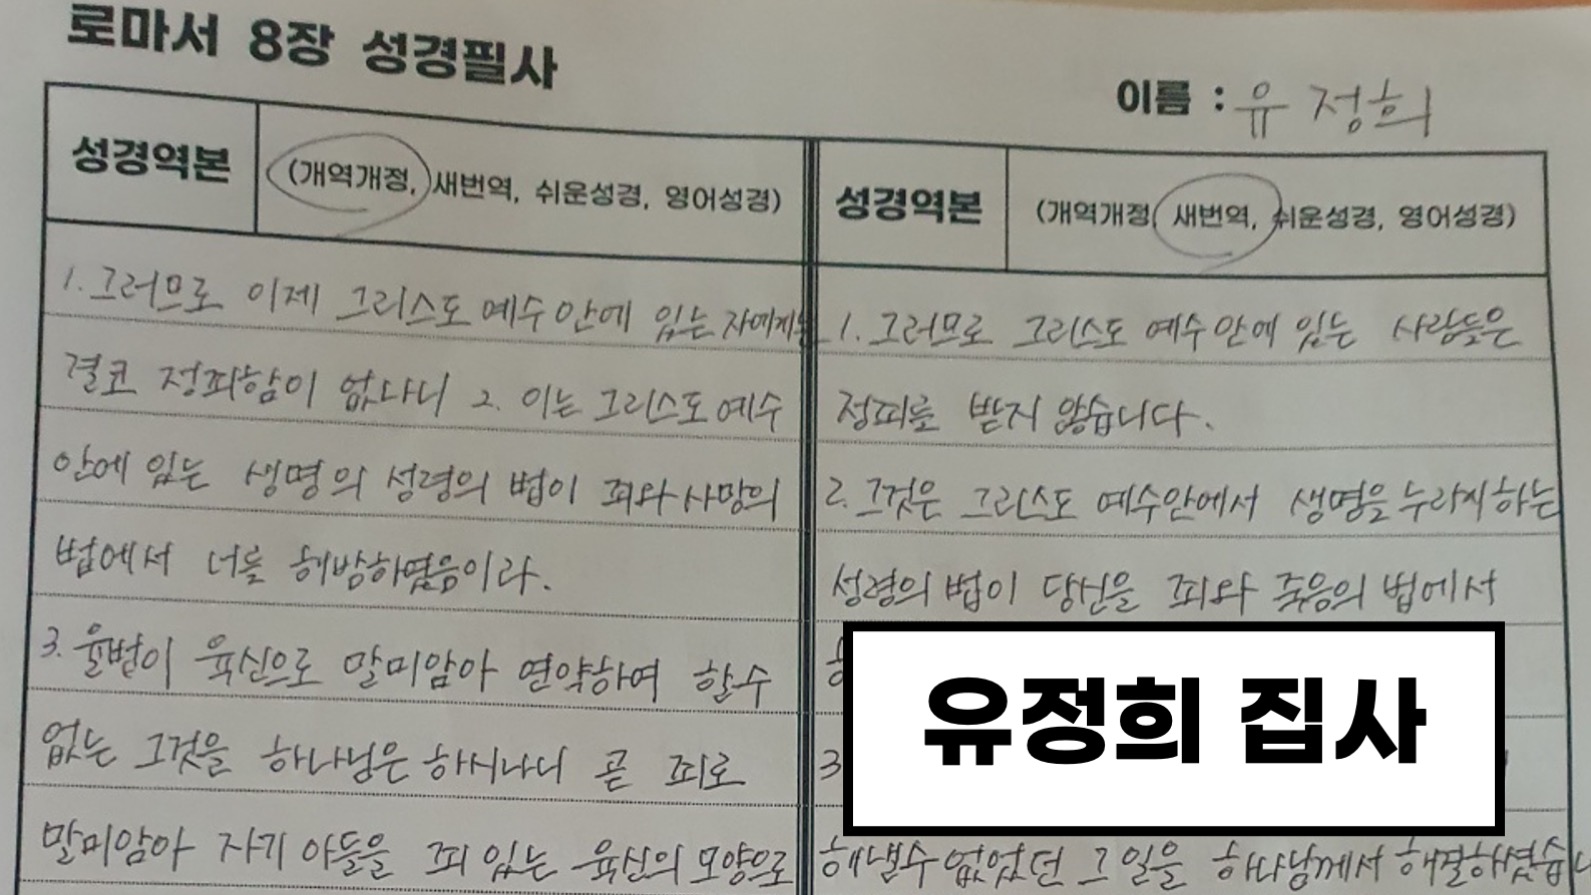 로마서 8장 성경필사
이름 : 유 정희
성경역본 (개역개정, 새번역, 쉬운성경, 영어성경)
1. 그러므로 이제 그리스도 예수 안에 있는 자에게는
결코 정죄함이 없나니 2. 이는 그리스도 예수
안에 있는 생명의 성령의 법이 죄와 사망의
법에서 너를 해방하였음이라.
3. 율법이 육신으로 말미암아 연약하여 할수
없는 그것을 하나님은 하시나니 곧 죄로
말미암아 자기 아들을 죄 있는 육신의 모양으로
성경역본 (개역개정, 새번역, 쉬운성경, 영어성경)
1. 그러므로 그리스도 예수 안에 있는 사람들은
정죄를 받지 않습니다.
2. 그것은 그리스도 예수안에서 생명을 누리게하는
성령의 법이 당신을 죄와 죽음의 법에서
3
해낼수 없었던 그 일을 하나님께서 해결하셨습니
유정희 집사